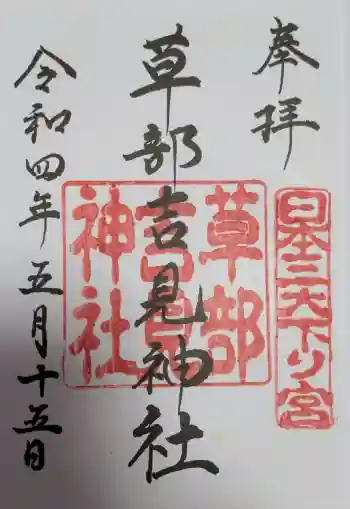 奉拝
日本三大下り宮
草部吉見神社
草部
吉見
神社
令和四年五月十五日